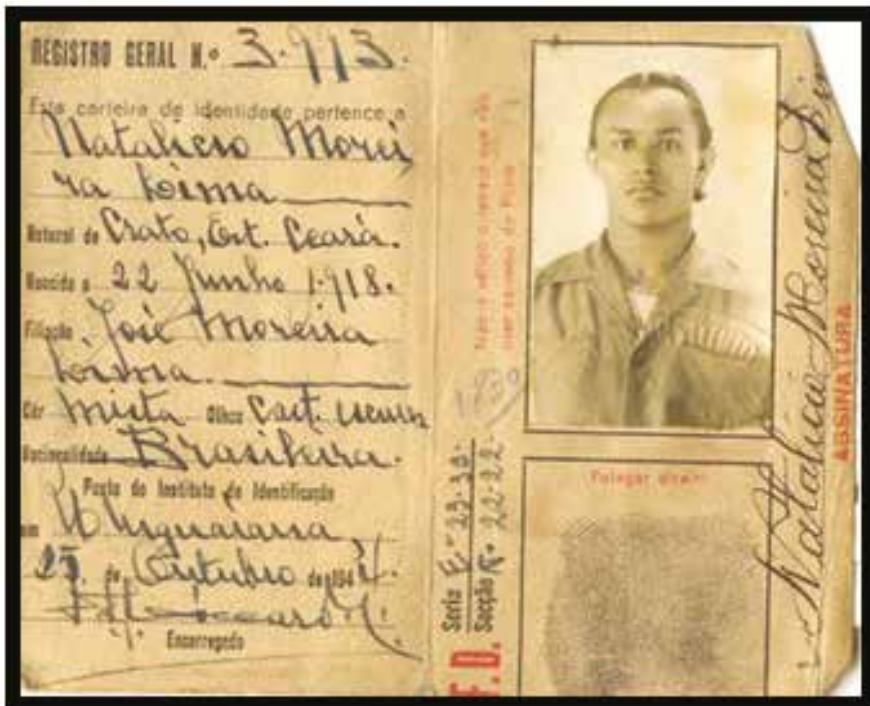 REGISTRO GERAL N.º 3.913.
Esta carteira de identidade pertence a
Natalicio Morei
ra Lima
Natural de Crato, Est. Ceará.
Nascido a 22 Junho 1.918.
Filiação José Moreira
Lima.
Côr Mista Olhos Cast. escuros
Nacionalidade Brasileira.
Posto do Instituto de Identificação
em Uruguaiana,
de Outubro de 194
Encarregado
Serie E-23-33
Secção 22-22
F.D.
Polegar direito
Natalicio Moreira
ASSINATURA